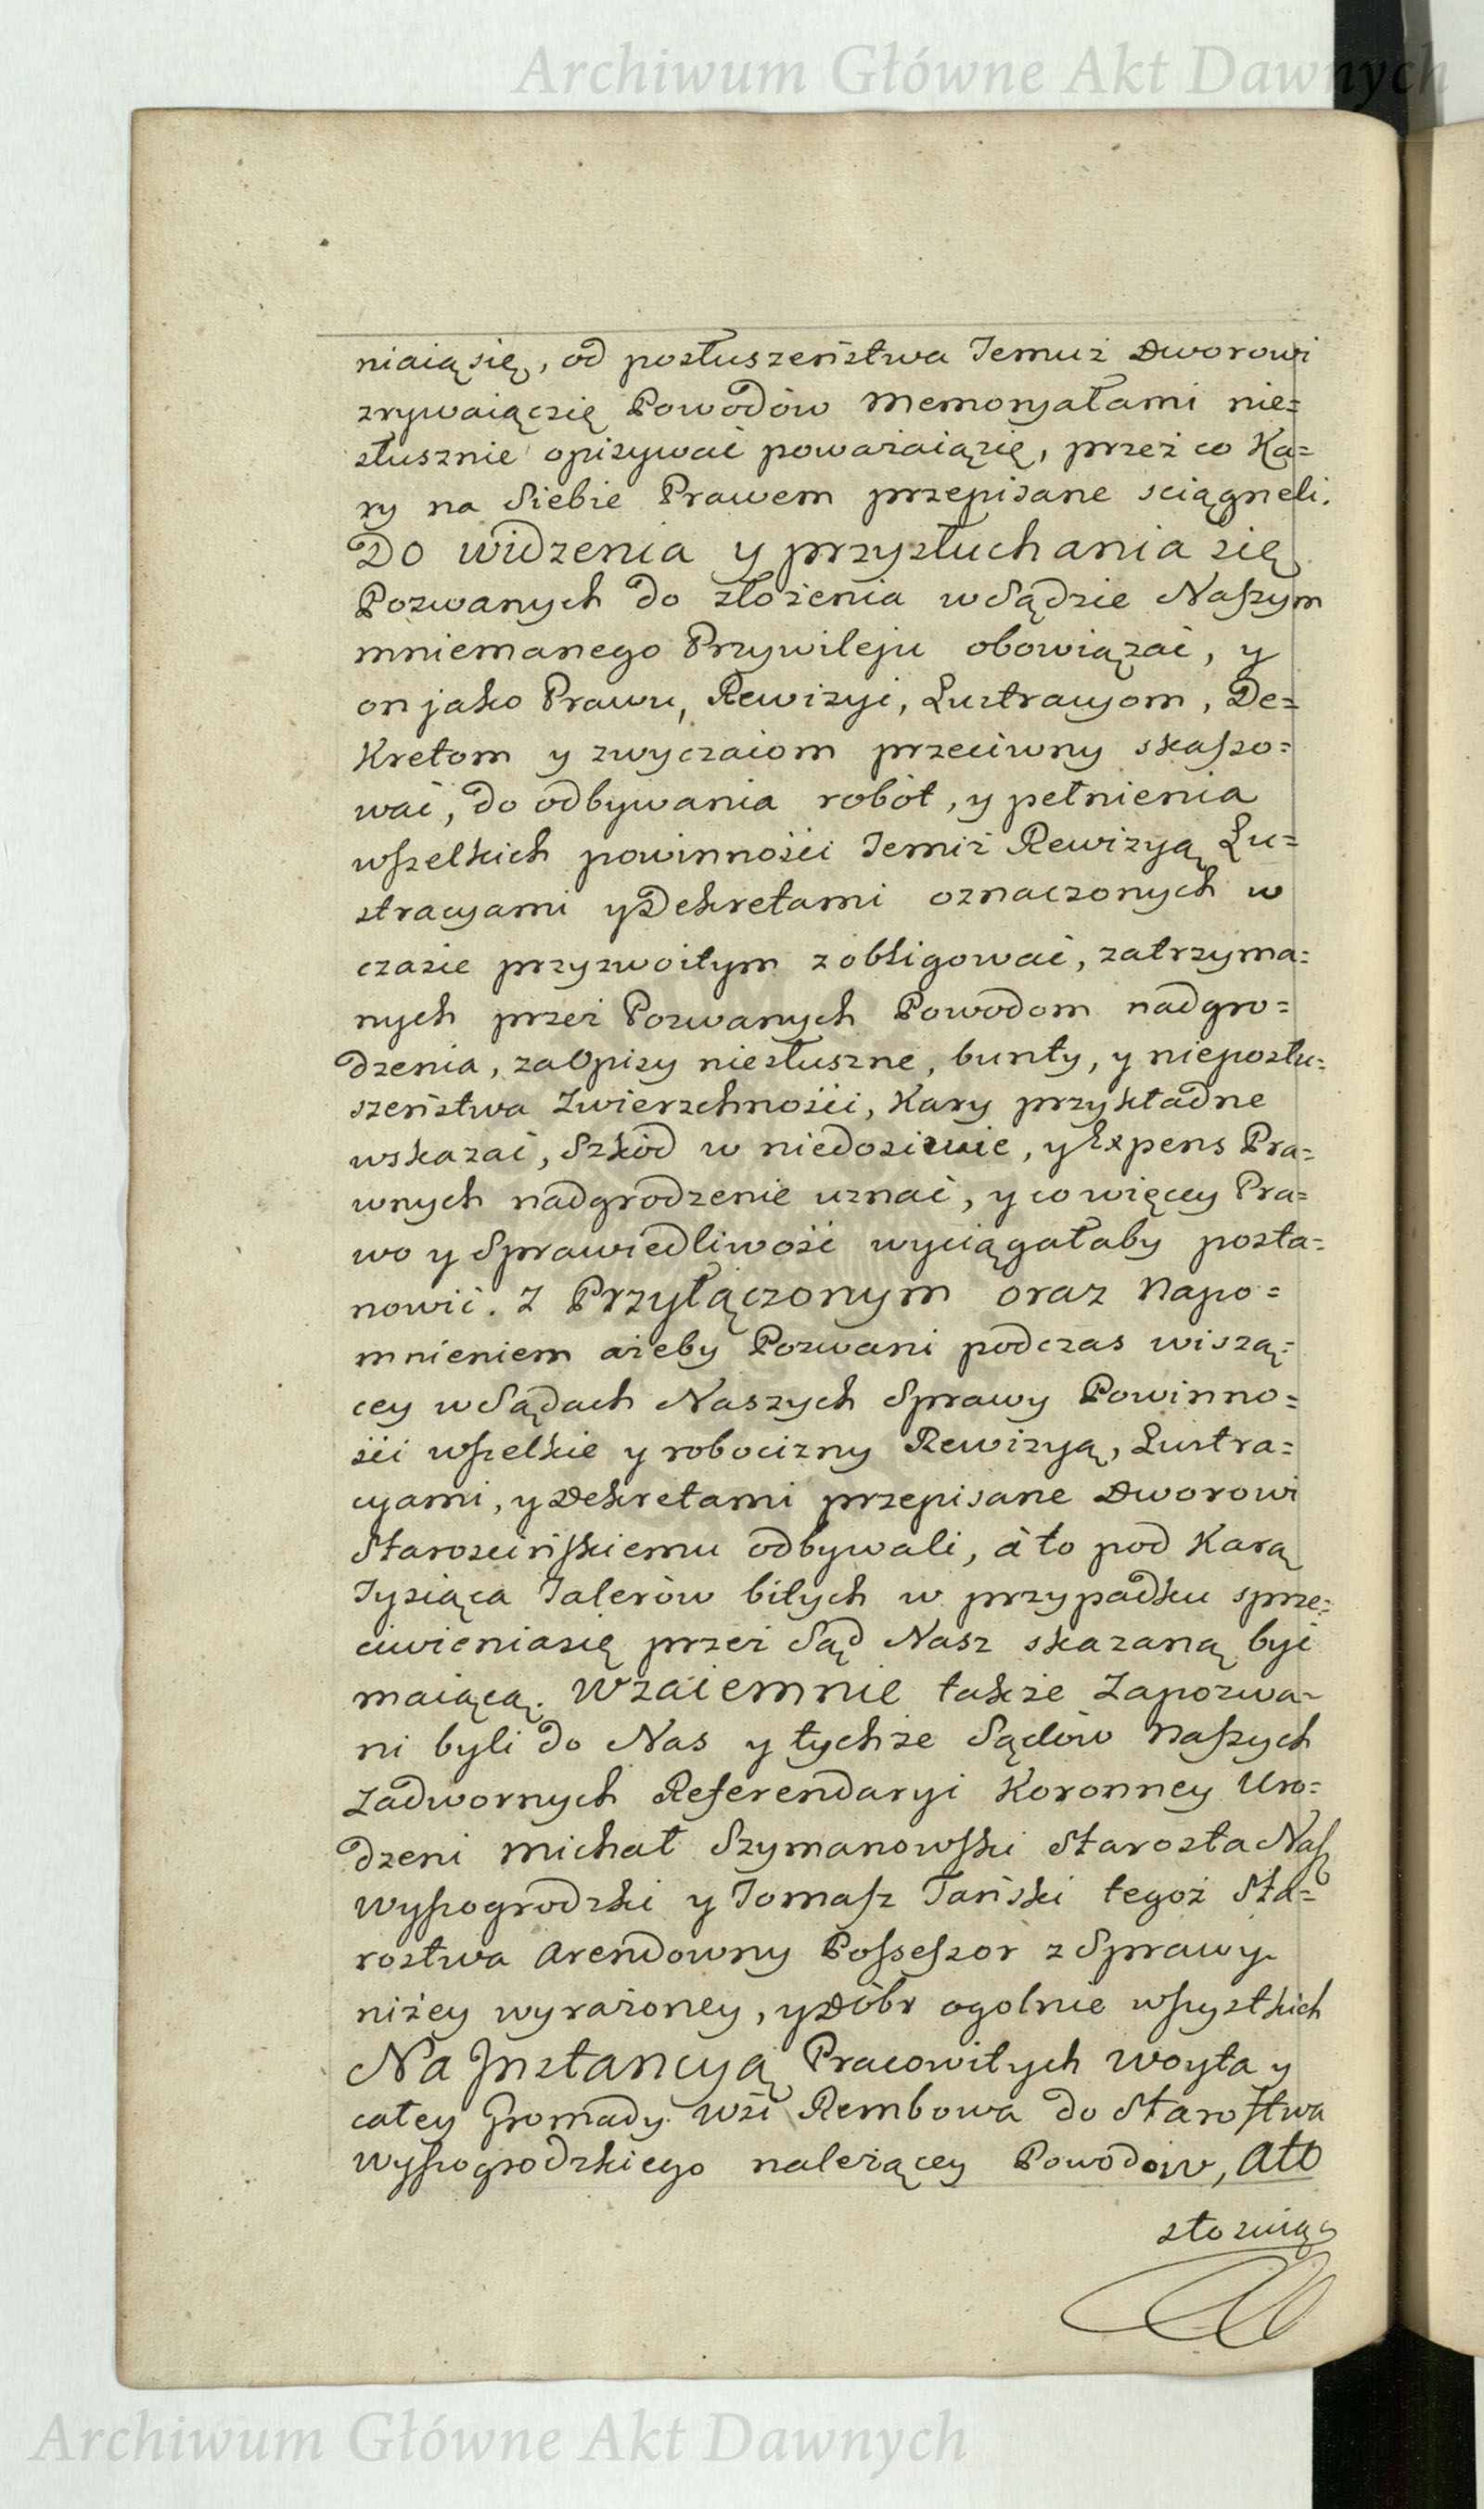 Archiwum Główne Akt Dawnych
niaią się, od posłuszeństwa Temuż Dworowi
zrywaiąc się Powodów Memoryałami nie=
słusznie opisywać poważaiąsię, przez co Ka=
ry na Siebie Prawem przepisane sciągneli.
Do widzenia y przysłuchania się
Pozwanych do złożenia w Sądzie Naszym
mniemanego Przywileju obowiązać, y
on jako Prawu, Rewizyi, Lustracyom, De=
kretom y zwyczaiom przeciwny skasso=
wać, do odbywania robót, y pełnienia
wszelkich powinności Temiż Rewizyą Lu=
stracyami y Dekretami oznaczonych w
czasie przyzwoitym zobligować, zatrzyma=
nych przez Pozwanych Powodom nadgro=
dzenia, za Opisy niesłuszne, bunty, y nieposłu=
szeństwa Zwierzchności, Kary przykładne
wskazać, Szkód w niedosiewie, y Expens Pra=
wnych nadgrodzenie uznać, y co więcey Pra=
wo y Sprawiedliwość wyciągałaby posta=
nowić. Z Przyłączonym oraz Napo=
mnieniem ażeby Pozwani podczas wiszą=
cey w Sądach Naszych Sprawy Powinno=
ści wszelkie y robocizny Rewizyą, Lustra=
cyami, y Dekretami przepisane Dworowi
Starościńskiemu odbywali, à to pod Karą
Tysiąca Talerów bitych w przypadku sprze=
ciwieniasię przez Sąd Nasz skazaną być
maiącą. Wzaiemnie także Zapozwa=
ni byli do Nas y tychże Sądów Naszych
Zadwornych Referendaryi Koronney Uro=
dzeni Michał Szymanowski Starosta Nasz
Wyszogrodzki y Tomasz Tański tegoż Sta=
rostwa Arendowny Possessor z Sprawy
niżey wyrażoney, y Dóbr ogolnie wszystkich
Na Jnstancyą Pracowitych Woyta y
całey Gromady wsi Rembowa do Starostwa
Wyszogrodzkiego należącey Powodów, Ato
stosuiąc
Archiwum Główne Akt Dawnych